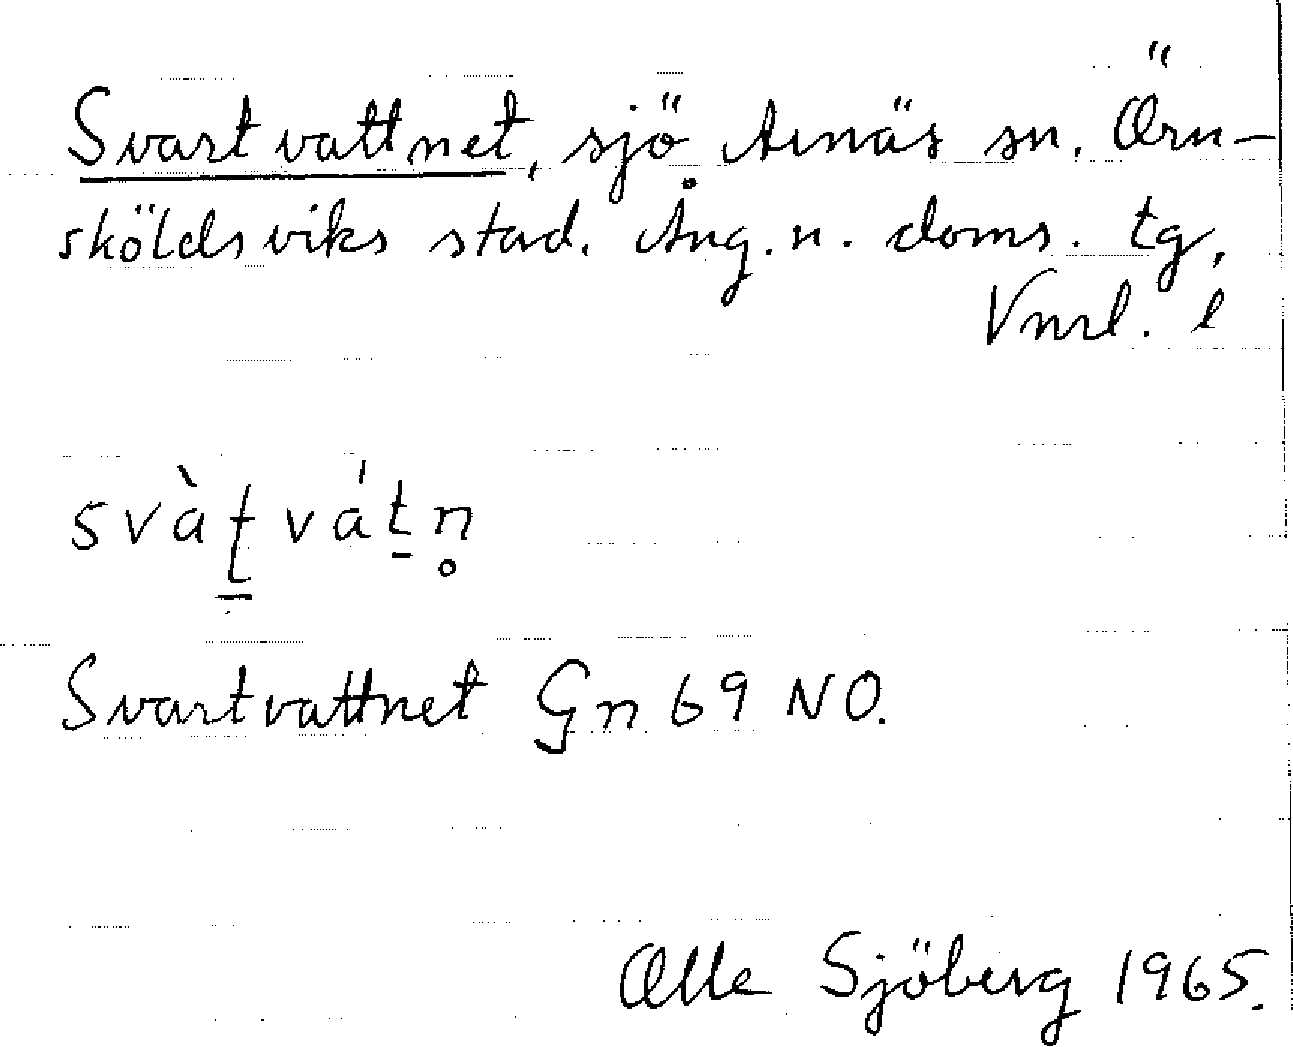 Svartvattnet, sjö Arnäs sn. Örn-
sköldsviks stad. Ång. n. doms. tg,
Vnrl. l
svàʈvát̠n̥
Svartvattnet Gn 69 NO.
Olle Sjöberg 1965.